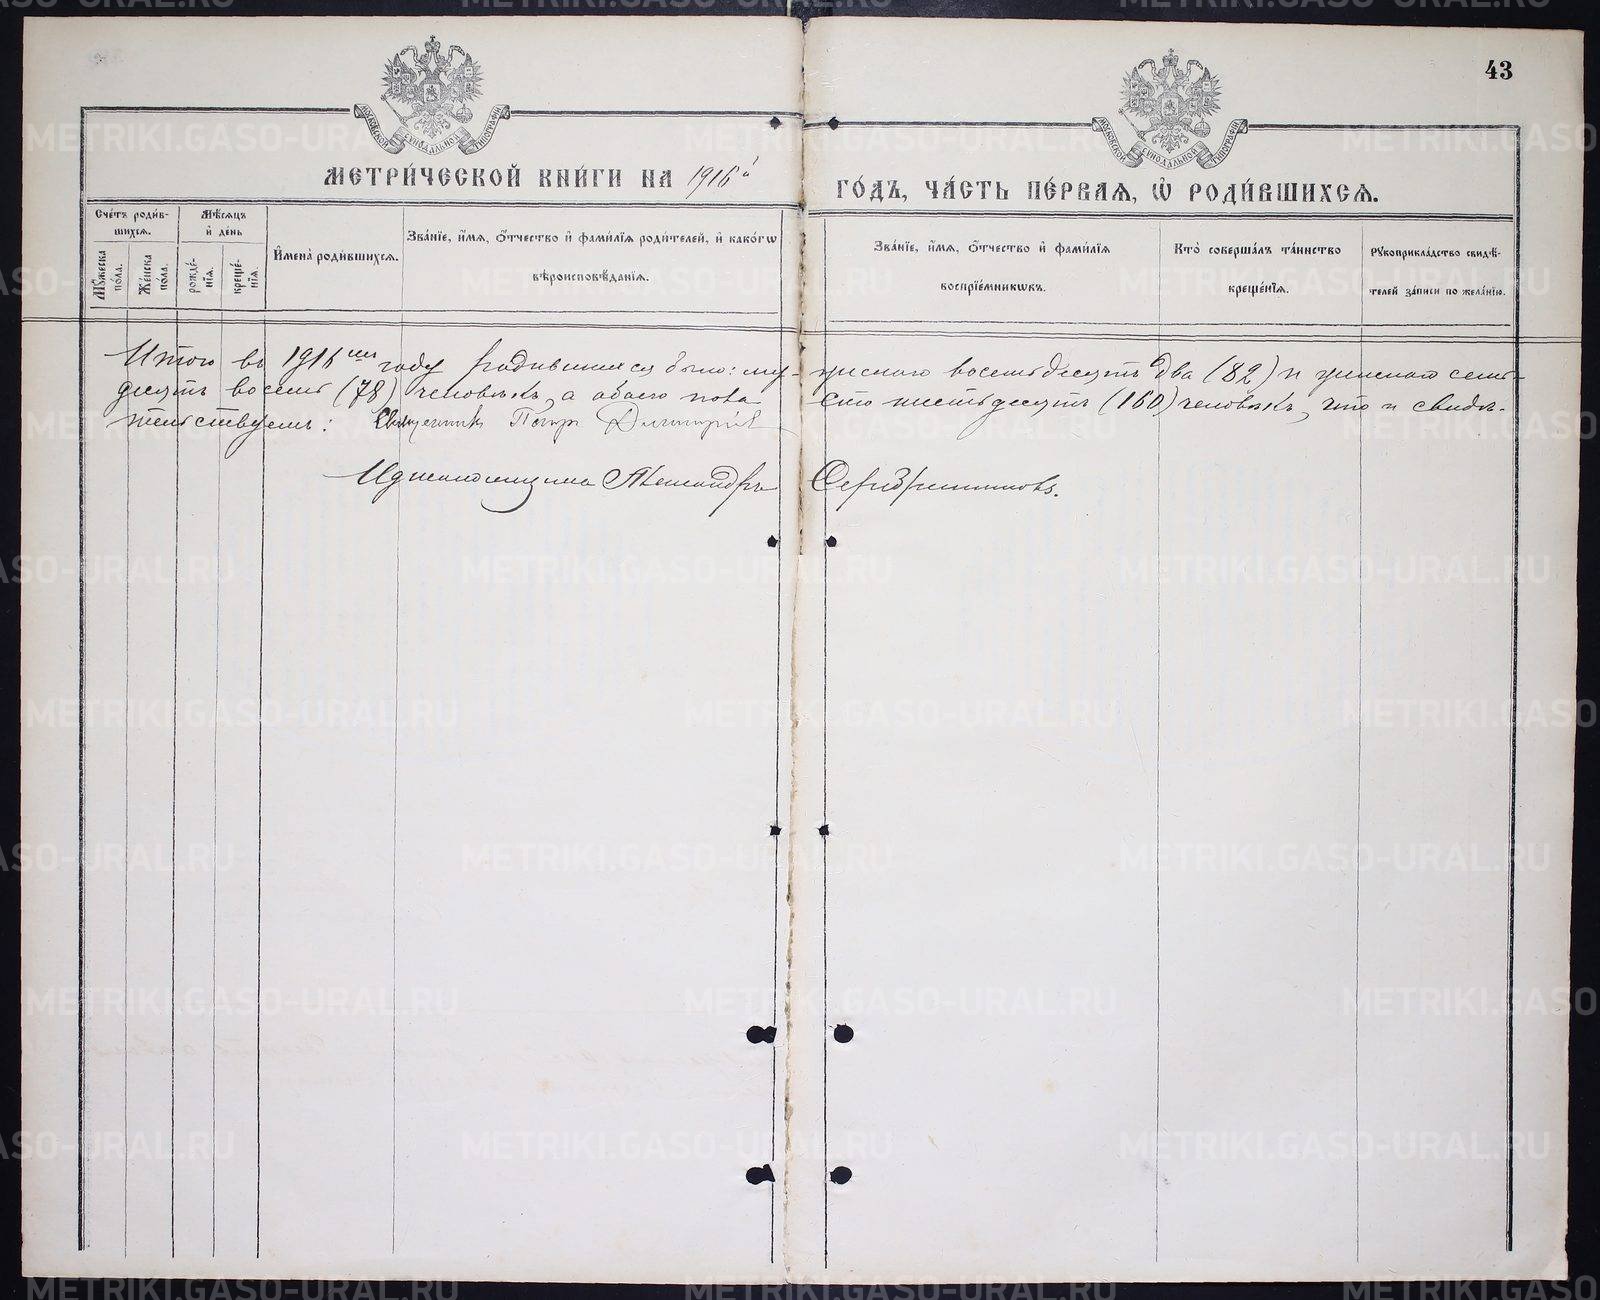 43
МОСКОВСКОЙ СУНОДАЛЬНОЙ ТИПОГРАФІИ
МОСКОВСКОЙ СУНОДАЛЬНОЙ ТИПОГРАФІИ
МЕТРИ́ЧЕСКОЙ КНИ́ГИ НА 1916й ГО́ДЪ, ЧА́СТЬ ПЕ́РВАЯ, Ѿ РОДИ́ВШИХСЯ.
Сче́тъ роди́в-
шихся.
Му́жеска по́ла.
Же́нска по́ла.
Мѣ́сяцъ
и҆ де́нь
рожде́-
нїя.
креще́-
нїя.
И҆мена̀ роди́вшихся.
Зва́нїе, и҆́мя, Ѻ҆́тчество и҆ фами́лїя роди́телей, и҆ како́гѡ
вѣроисповѣ́данїя.
Зва́нїе, и҆́мя, Ѻ҆́тчество и҆ фами́лїя
воспрїе́мникѡвъ.
Кто̀ соверша́лъ та́инство
креще́нїя.
Рꙋкоприкла́дство свидѣ́-
телей за́писи по жела́нїю.
Итого въ 1916 году родившихся было: му- жескаго восемьдесятъ два (82) и женскаго семь-
десятъ восемь (78) человѣкъ, а обоего пола сто шестьдесятъ (160) человѣкъ, что и свидѣ-
тельствуемъ: Священникъ Петръ Димитріев
И д псаломщика Александръ Серебренниковъ.
METRIKI.GASO-URAL.RU